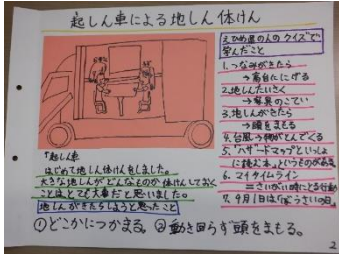 起しん車による地しん体けん
「起しん車
はじめて地しん体けんをしました。
大きな地しんがどんなものか体けんしておく
ことはとても大事だと思いました。
地しんがきたらしようと思ったこと
①どこかにつかまる。②動き回らず頭をまもる。
えひめ県の人のクイズで
学んだこと
1.つなみがきたら
→高台ににげる
2.地しんたいさく
→家具のこてい
3.地しんがきたら
→頭をまもる
4.台風→物がとんでくる
5.「ハザードマップ」といっしょ
というものがある
6.マイタイムライン
=さいがい時にとる行動
7.9月1日は「ぼうさいの日」
2